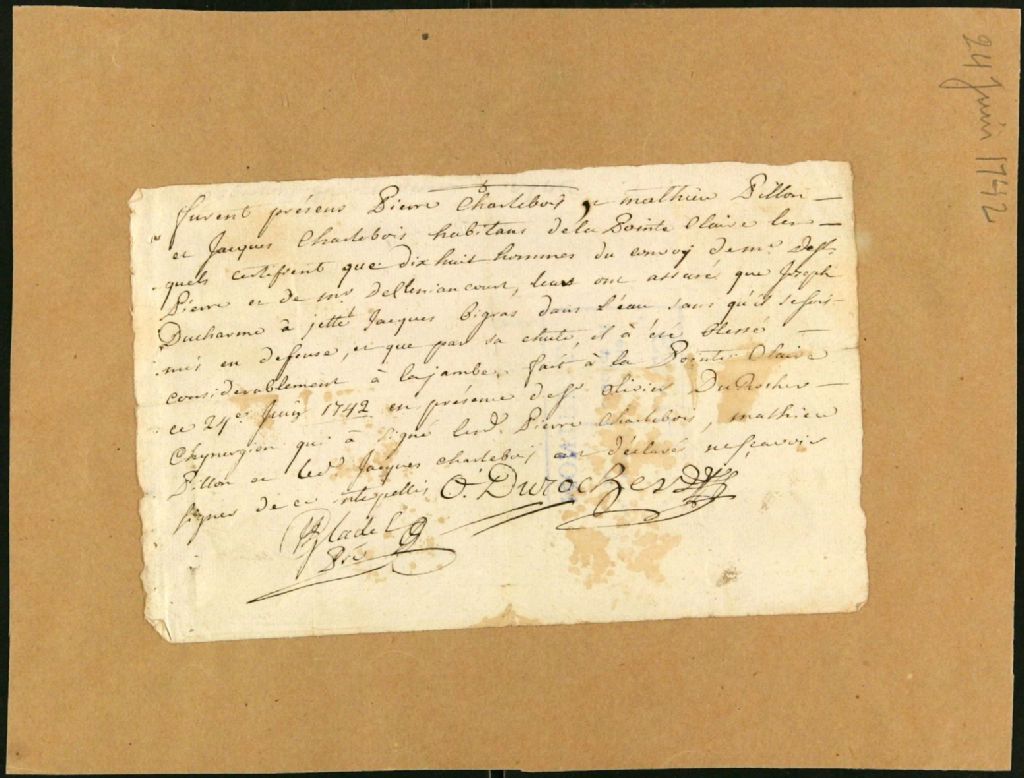 furent présens Pierre Charlebois mathieu Pillon
et Jacques Charlebois habitans de la Pointe Claire les
quels certifient que dix huit hommes du convoy de mr. de St.
Pierre et de mr. de leur ont assuré que Joseph
Ducharme à jetté Jacques Bigras dans l'eau sans qu'il se fut
mis en defense, et que par sa chute, il à été blessé
considerablement à la jambe fait à la Pointe Claire
ce 24e. Juin 1742 en présence de Sr. olivier DuRocher
Chyrurgien qui à signé led. Pierre Charlebois, mathieu
Pillon et led. Jacques charlebois ont déclaré ne sçavoir
signer de ce interpellés
O. Durocher
Ptre
24 Juin 1742